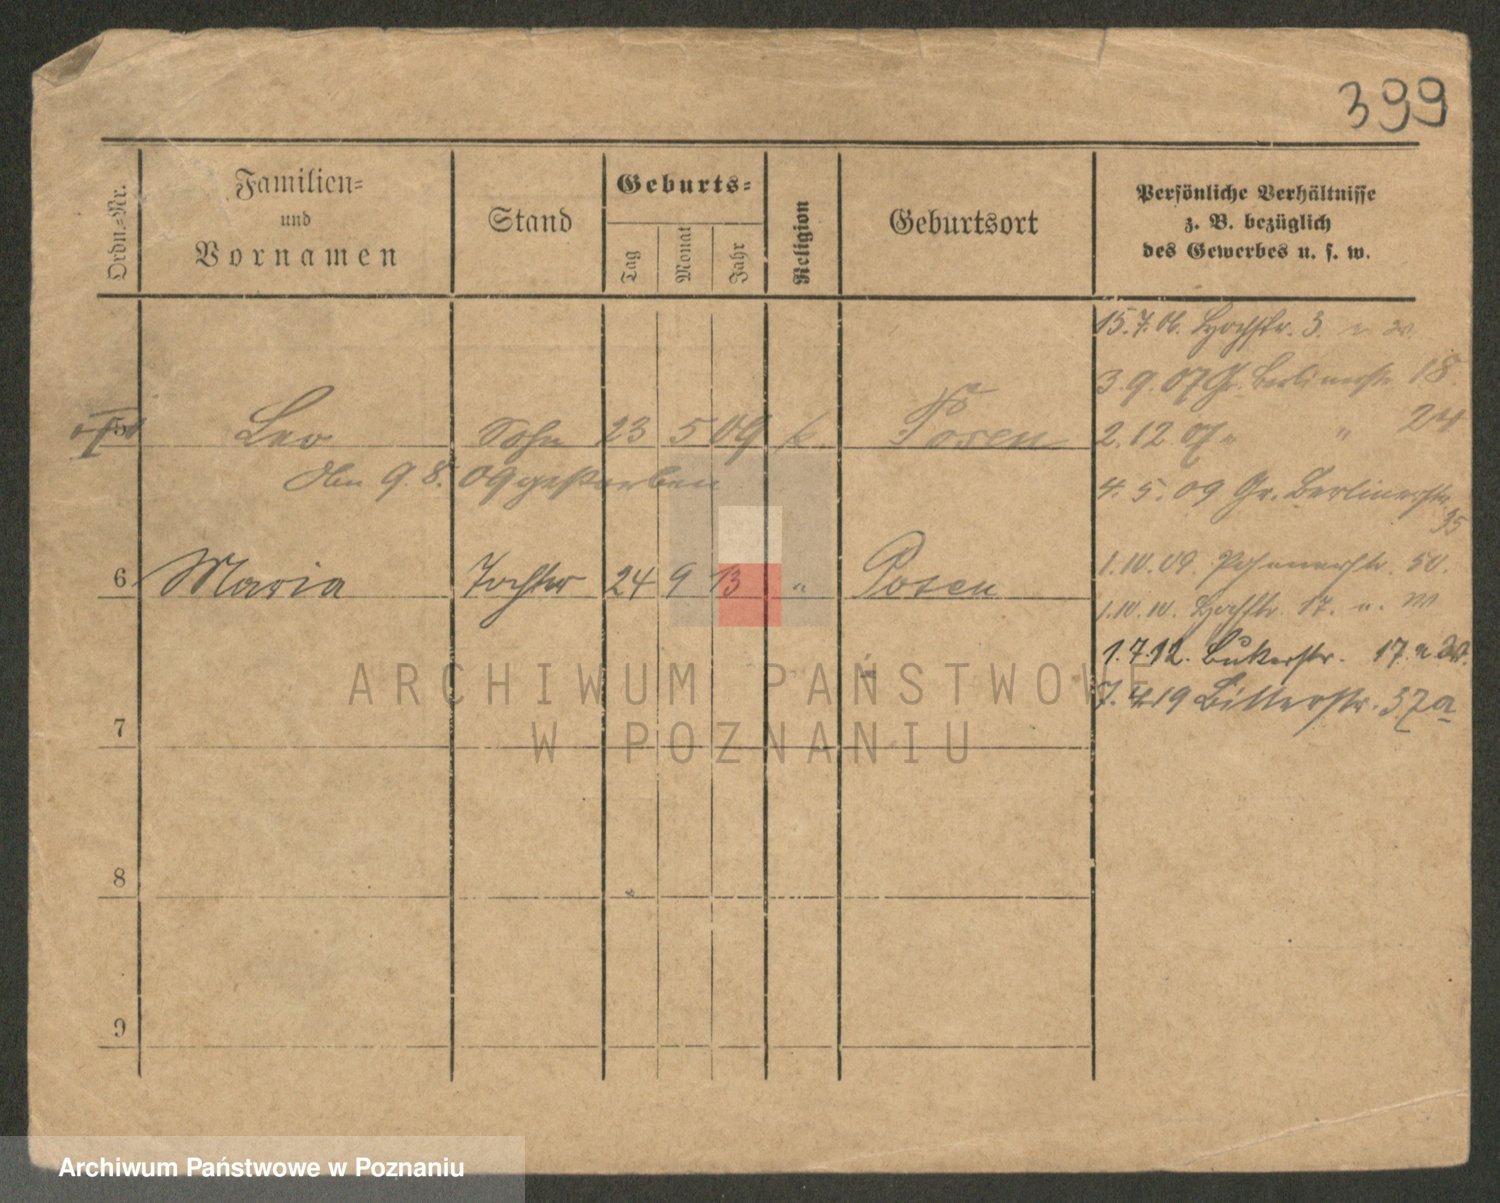 399
Ordn.-Nr.
Familien-
und
Vornamen
Stand
Geburts-
Tag
Monat
Jahr
Religion
Geburtsort
Persönliche Verhältnisse
z. B. bezüglich
des Gewerbes u. s. w.
15.7.06. Hochstr. 3.
3.9.07 Gr. Berlinerstr. 18.
5 Leo Sohn 23 5 09 k. Posen
2.12.07 " " 24
Am 9.8.09 gestorben
4.5.09 Gr. Berlinerstr.
35
6 Maria Tochter 24 9 13 " Posen
1.10.09. 50.
1.10.10. Hochstr. 17.
1.7.12. Bukerstr. 17.
7.4.19 Bitterstr. 37a
7
8
9
ARCHIWUM PAŃSTWOWE
W POZNANIU
Archiwum Państwowe w Poznaniu